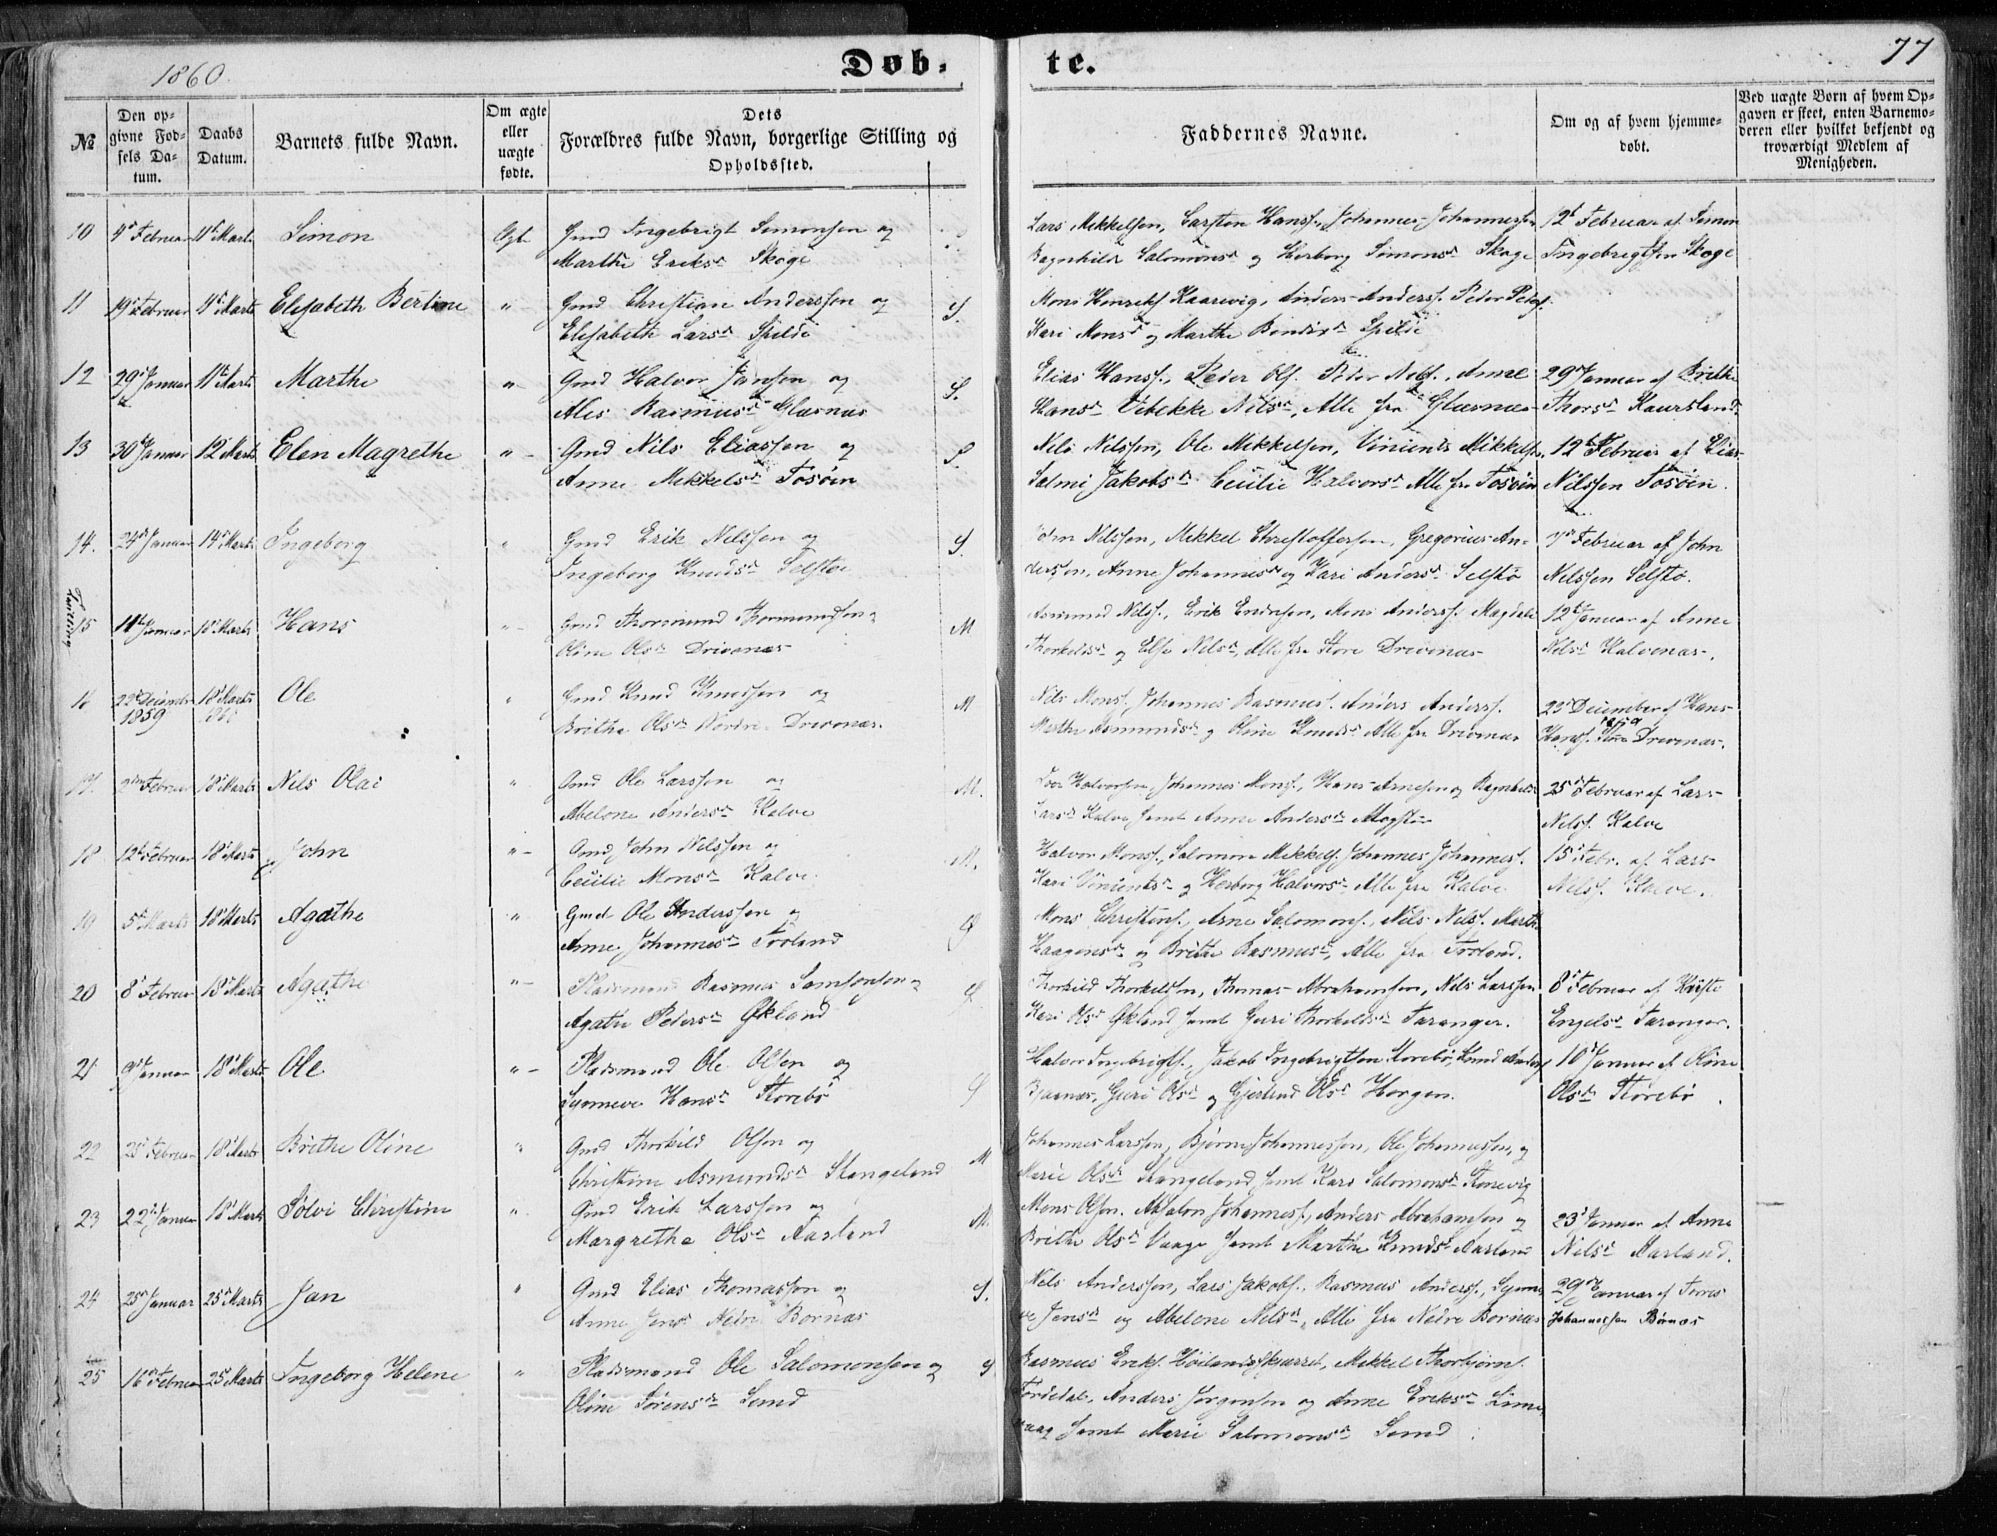 1860.
Døb-
te.
77
№
Den op-
givne Fød-
sels Da-
tum.
Daabs
Datum.
Barnets fulde Navn.
Om ægte
eller
uægte
fødte.
Dets
Forældres fulde Navn, borgerlige Stilling og
Opholdssted.
Faddernes Navne.
Om og af hvem hjemme-
døbt.
Ved uægte Børn af hvem Op-
gaven er skeet, enten Barnemo-
deren eller hvilket bekjendt og
troværdigt Medlem af
Menigheden.
10 4de Februar 11te Marts Simon Ægte Gmd Ingebrigt Simonsen og
Marthe Eriksd Skoge
Lars Mikkelsen, Carsten Hanss, Johannes Johannessen
Ragnhild Salomonsd og Herborg Simonsd Skoge
12t Februar af Simon
Ingebrigtsen Skoge
11 19de Februar 11te Marts Elisabeth Bertine " Gmd Christian Anderssen og S.
Elisabeth Larsd Spilde
Mons Henriks Kaarevig, Anders Anderss. Peder Peders.
Kari Monsd og Marthe Spilde
12 29de Januar 11te Marts Marthe " Gmd Halvor Jansen og S.
Ales Rasmusd Glæsnæs
Elias Hanss., Peder Ols. Peder Nels., Anne
Hansd Vibekke Nilsd, Alle fra Glæsnæs
29de Januar af Brithe
Thorsd Kaursland.
13 30de Januar 12te Marts Elen Magrethe " Gmd Nils Eliassen og S.
Anne Mikkelsd Tosøen
Nils Nilssen, Ole Mikkelsen, Vinients Mikkels.
Jakobsd Cecilie Halvorsd Alle fra Tosøen
12te Februar af Elias
Nilssen Tosøen.
14. 24de Januar 14de Marts Ingeborg " Gmd Erik Nilssen og S.
Ingeborg Knudsd Selstø
John Nilssen, Mikkel Christoffersen, Gregorius An-
derssen, Anne Johannesd og Kari Andersd Selstø
7de Februar af John
Nilssen Selstø.
Tvilling
15 11te Januar 18de Marts Hans " Gmd Thormund Thormundsen og M
Oline Olsd Drivenæs
Asmund Nils., Erik Endresen, Mons Anderss. Magdele
Thorkelsd og Else Nilsd, Alle fra Store Drivenæs
12te Januar af Anne
Nilsd Halvenæs.
16 22de December 1859 18de Marts 1860 Ole " Gmd Knud Knudsen og M
Brithe Olsd Nordre Drivenæs.
Nils Mons. Johannes Rasmus. Anders Anderss.
Marthe Asmundsd og Oline Knudsd Alle fra Drivenæs
23de December af Hans
Hanss. Drivenæs.
17. Februar 18de Marts Nils Olai " Gmd Ole Larssen og M.
Abelone Andersd Kalve
Halvorsen, Johannes Monss., Hans Arnesen og Ragnhild
Larsd Kalve samt Anne Andersd Møgster
25de Februar af Lars
Nils. Kalve
18 12te Februar 18de Marts John " Gmd John Nilssen og M.
Cecilie Monsd Kalve
Halvor Monss., Salomon Mikkels. Johannes Johanness.
Kari Vinientsd og Herborg Halvorsd Alle fra Kalve
15de Febr. af Lars
Nils. Kalve.
19 5te Marts 18de Marts Agathe " Gmd Ole Anderssen og S
Anne Johannesd Troland
Mons Christens., Arne Salomons., Nils Nils. Marthe
Haagensd og Brithe Rasmusd, Alle fra Troland.
20 8de Februar 18de Marts Agathe " Pladsmand Rasmus Samsonsen og S
Agathe Pedersd Økland
Thorkild Thorkildsen, Thomas Abrahamsen, Nils Larssen
Kari Olsd Økland samt Guri Thorkildsd Taranger.
8de Februar af Kriste
Engelsd Taranger.
21 9de Januar 18de Marts Ole " Pladsmand Ole Olsen og S
Synneve Hansd Storebø
Halvor Ingebrigts., Jakob Ingebrigtsen Storebø, Knud Anders.
Bjænæs, Guri Olsd og Gjertrud Olsd Horgen.
10de Januar af
Olsd Storebø.
22 25de Februar 18de Marts Brithe Oline " Gmd Thorkild Olsen og M
Christine Asmundsd Stangeland
Johannes Larssen, Bjørne Johannessen, Ole Johannessen, og
Marie Olsd Stangeland samt Kari Salomonsd Stonevig
23 22de Januar 18de Marts Sølvi Christine " Gmd Erik Larssen og M.
Margrethe Olsd Aarland
Mons Olsen, Absalon Johanness., Anders Abrahamsen og
Brithe Olsd Vaage samt Marthe Knudsd Aarland
23de Januar af Anne
Nilsd Aarland.
24 25de Januar 25de Marts Jan " Gmd Elias Thomassen og S.
Anne Jensd Nedre Børnæs
Nils Anderssen, Lars Jakobs., Rasmus Anderss., Synne-
ve Jensd og Abelone Nilsd, Alle fra Nedre Børnæs
29de Januar af Torres
Johannessen Børnæs
25 16de Februar 25de Marts Ingeborg Helene " Pladsmand Ole Salomonsen og S
Oline Sørensd Sund
Rasmus Eriks. Høilandsskjæret, Mikkel Thorbjørns.
Førdedal, Anders Jørgensen og Anne Eriksd Lunne-
vaag samt Marie Salomonsd Sund.